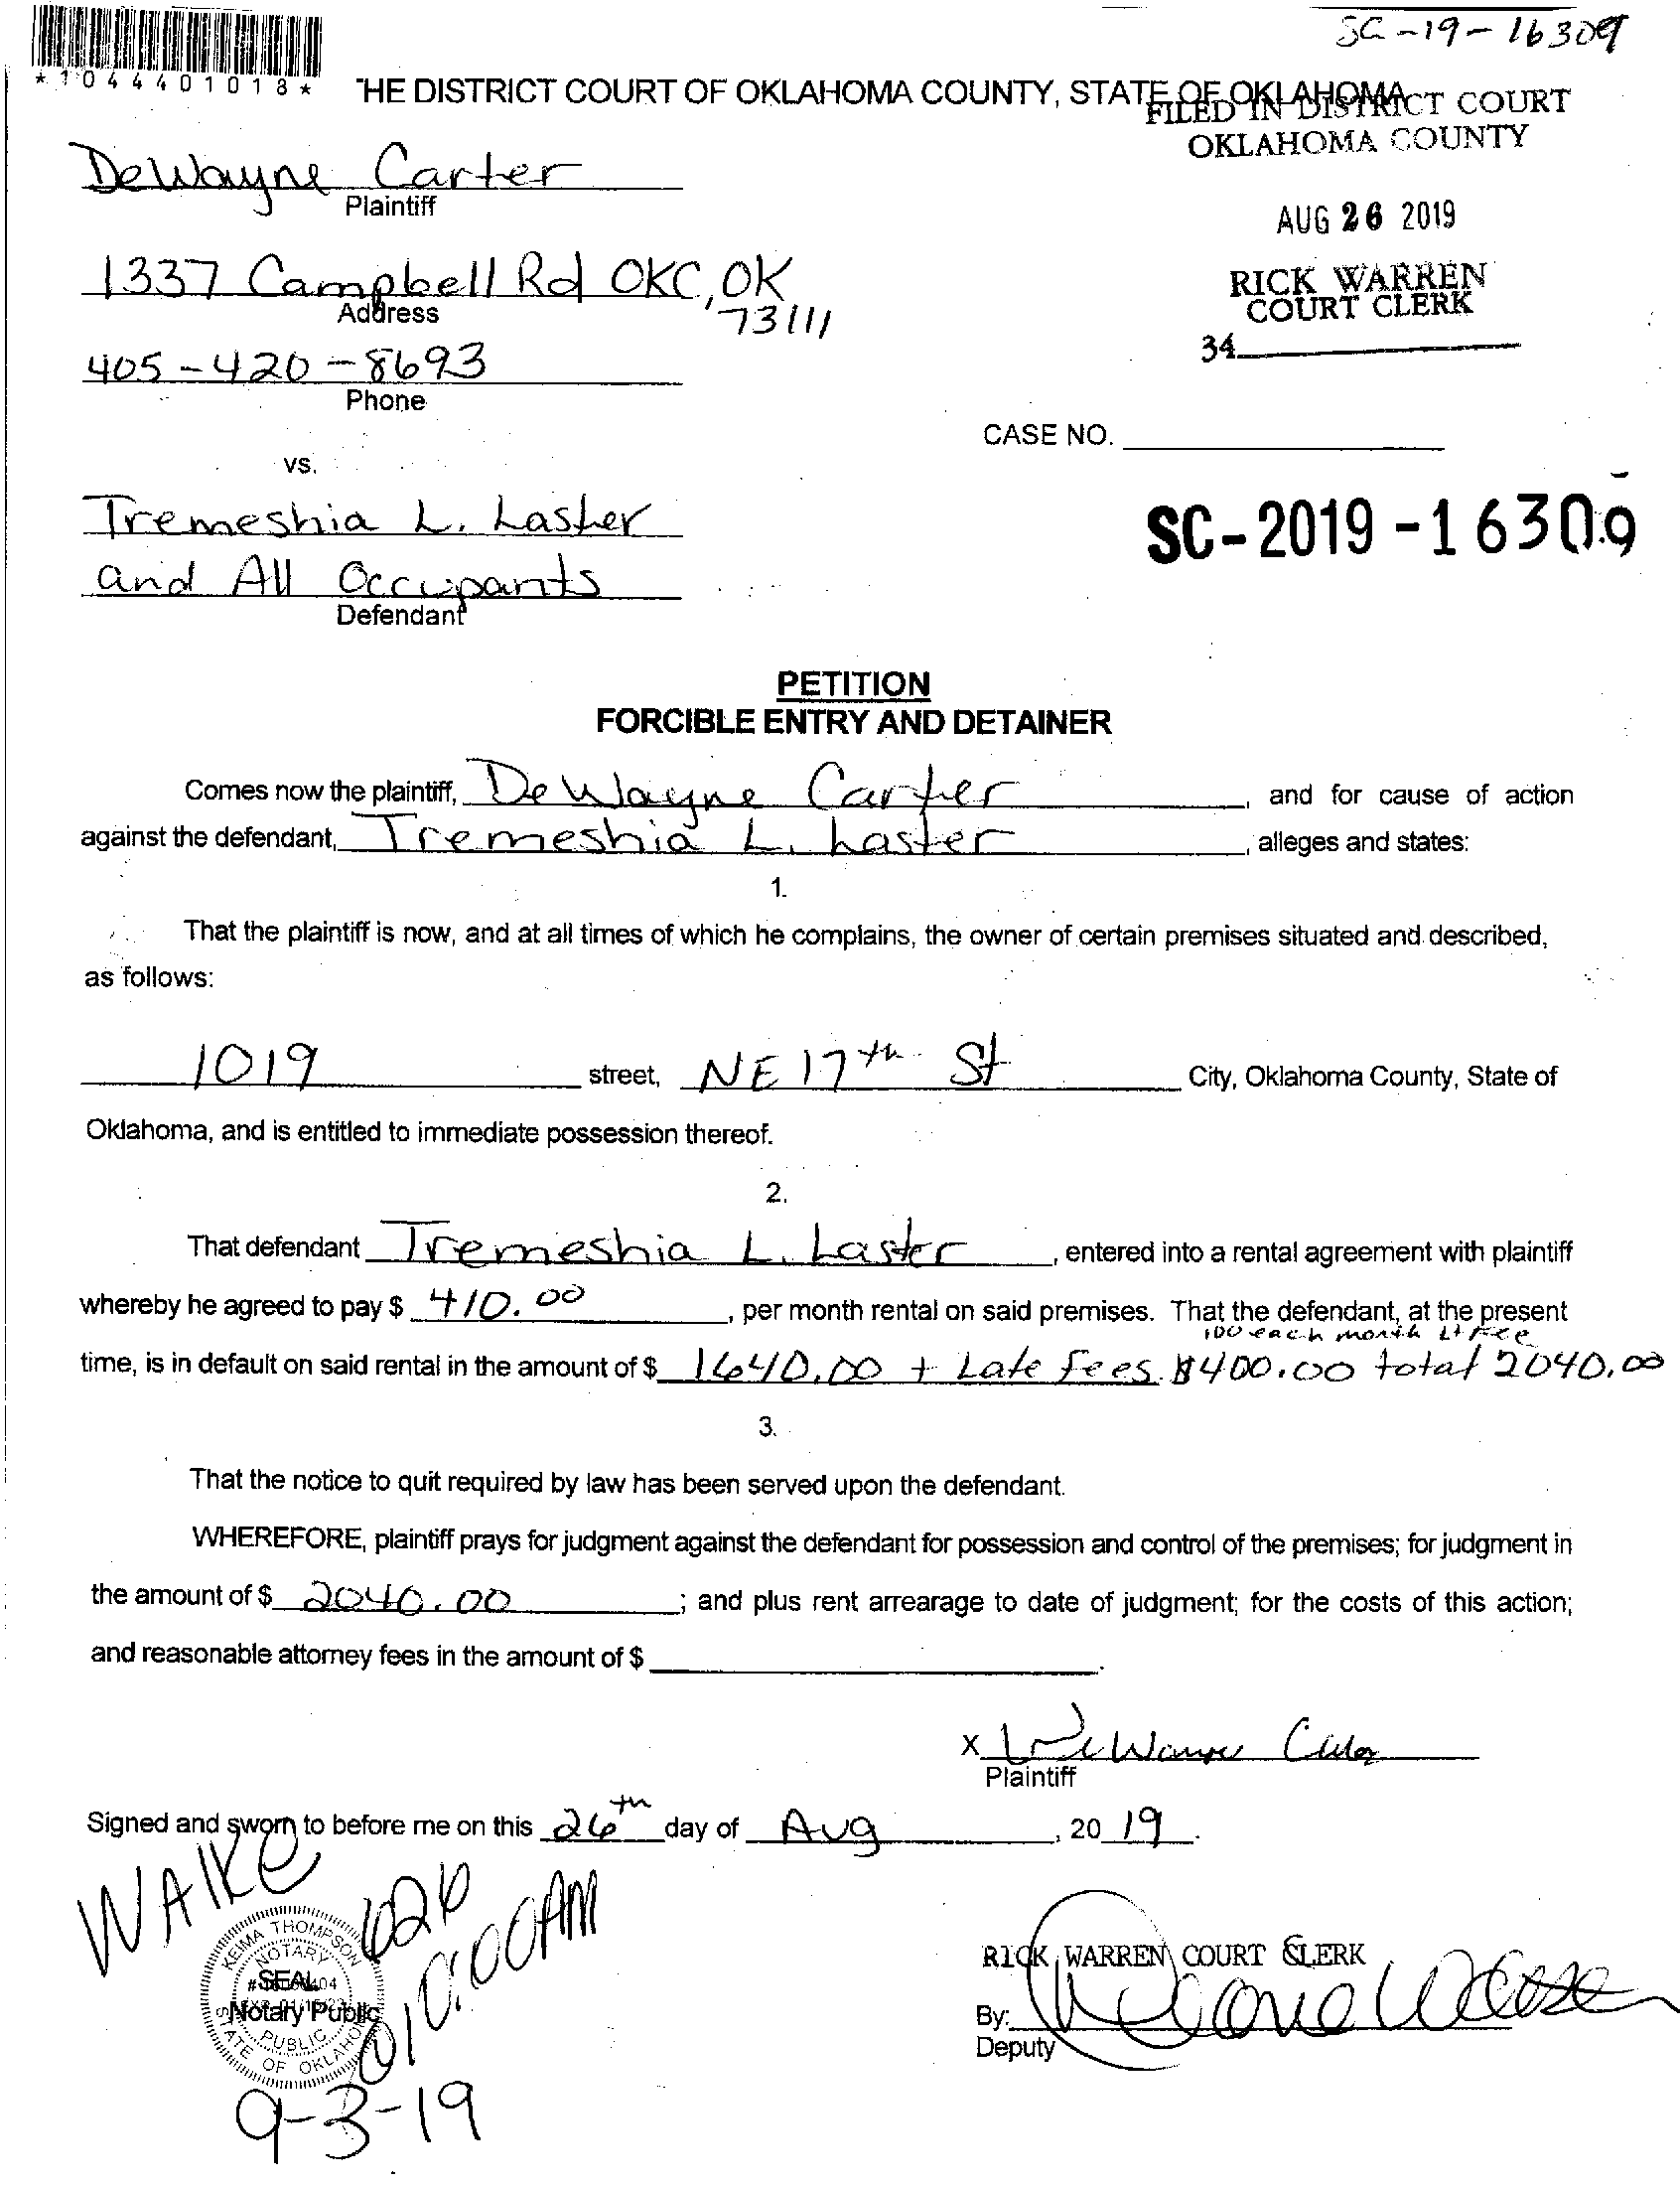 SC-19-16309
*1044401018*
THE DISTRICT COURT OF OKLAHOMA COUNTY, STATE OF OKLAHOMA
FILED IN DISTRICT COURT
OKLAHOMA COUNTY
DeWayne Carter
Plaintiff
AUG 26 2019
1337 Campbell Rd OKC, OK
73111
Address
RICK WARREN
COURT CLERK
34
405-420-8693
Phone
CASE NO.
vs.
SC-2019-16309
Tremeshia L. Laster
and All Occupants
Defendant
PETITION
FORCIBLE ENTRY AND DETAINER
Comes now the plaintiff, DeWayne Carter, and for cause of action
against the defendant, Tremeshia L. Laster, alleges and states:
1.
That the plaintiff is now, and at all times of which he complains, the owner of certain premises situated and described,
as follows:
1019 street, NE 17th St City, Oklahoma County, State of
Oklahoma, and is entitled to immediate possession thereof.
2.
That defendant Tremeshia L. Laster, entered into a rental agreement with plaintiff
whereby he agreed to pay $ 410.00, per month rental on said premises. That the defendant, at the present
100 each month Lt Fee
time, is in default on said rental in the amount of $ 1640.00 + Late fees $400.00 total 2040.00
3.
That the notice to quit required by law has been served upon the defendant.
WHEREFORE, plaintiff prays for judgment against the defendant for possession and control of the premises; for judgment in
the amount of $ 2040.00; and plus rent arrearage to date of judgment; for the costs of this action;
and reasonable attorney fees in the amount of $
X DeWayne Carter
Plaintiff
Signed and sworn to before me on this 26th day of Aug, 2019.
WAIKE
626
@10:00AM
KEIMA THOMPSON
NOTARY
SEAL
Notary Public
PUBLIC
STATE OF OKLAHOMA
9-3-19
RICK WARREN COURT CLERK
By:
Deputy